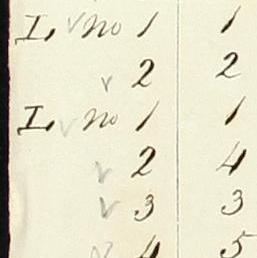 I, ✓ no 1 1
✓ 2 2
I, ✓ no 1 1
✓ 2 4
✓ 3 3
✓ 4 5